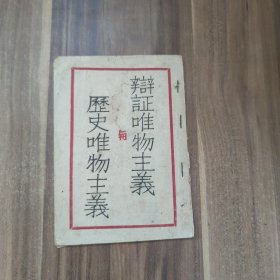 辯証唯物主義
歷史唯物主義